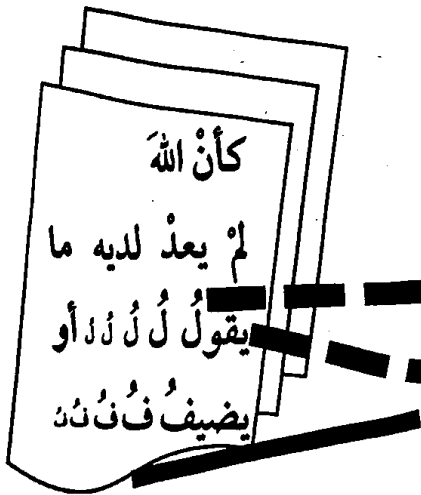 كأنْ اللهَ
لمْ يعدْ لديه ما
يقولُ لُ لُ لُ لُ أو
يضيفُ فُ فُ فُ فُ